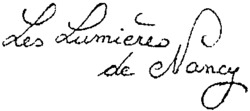 Les Lumières
de Nancy